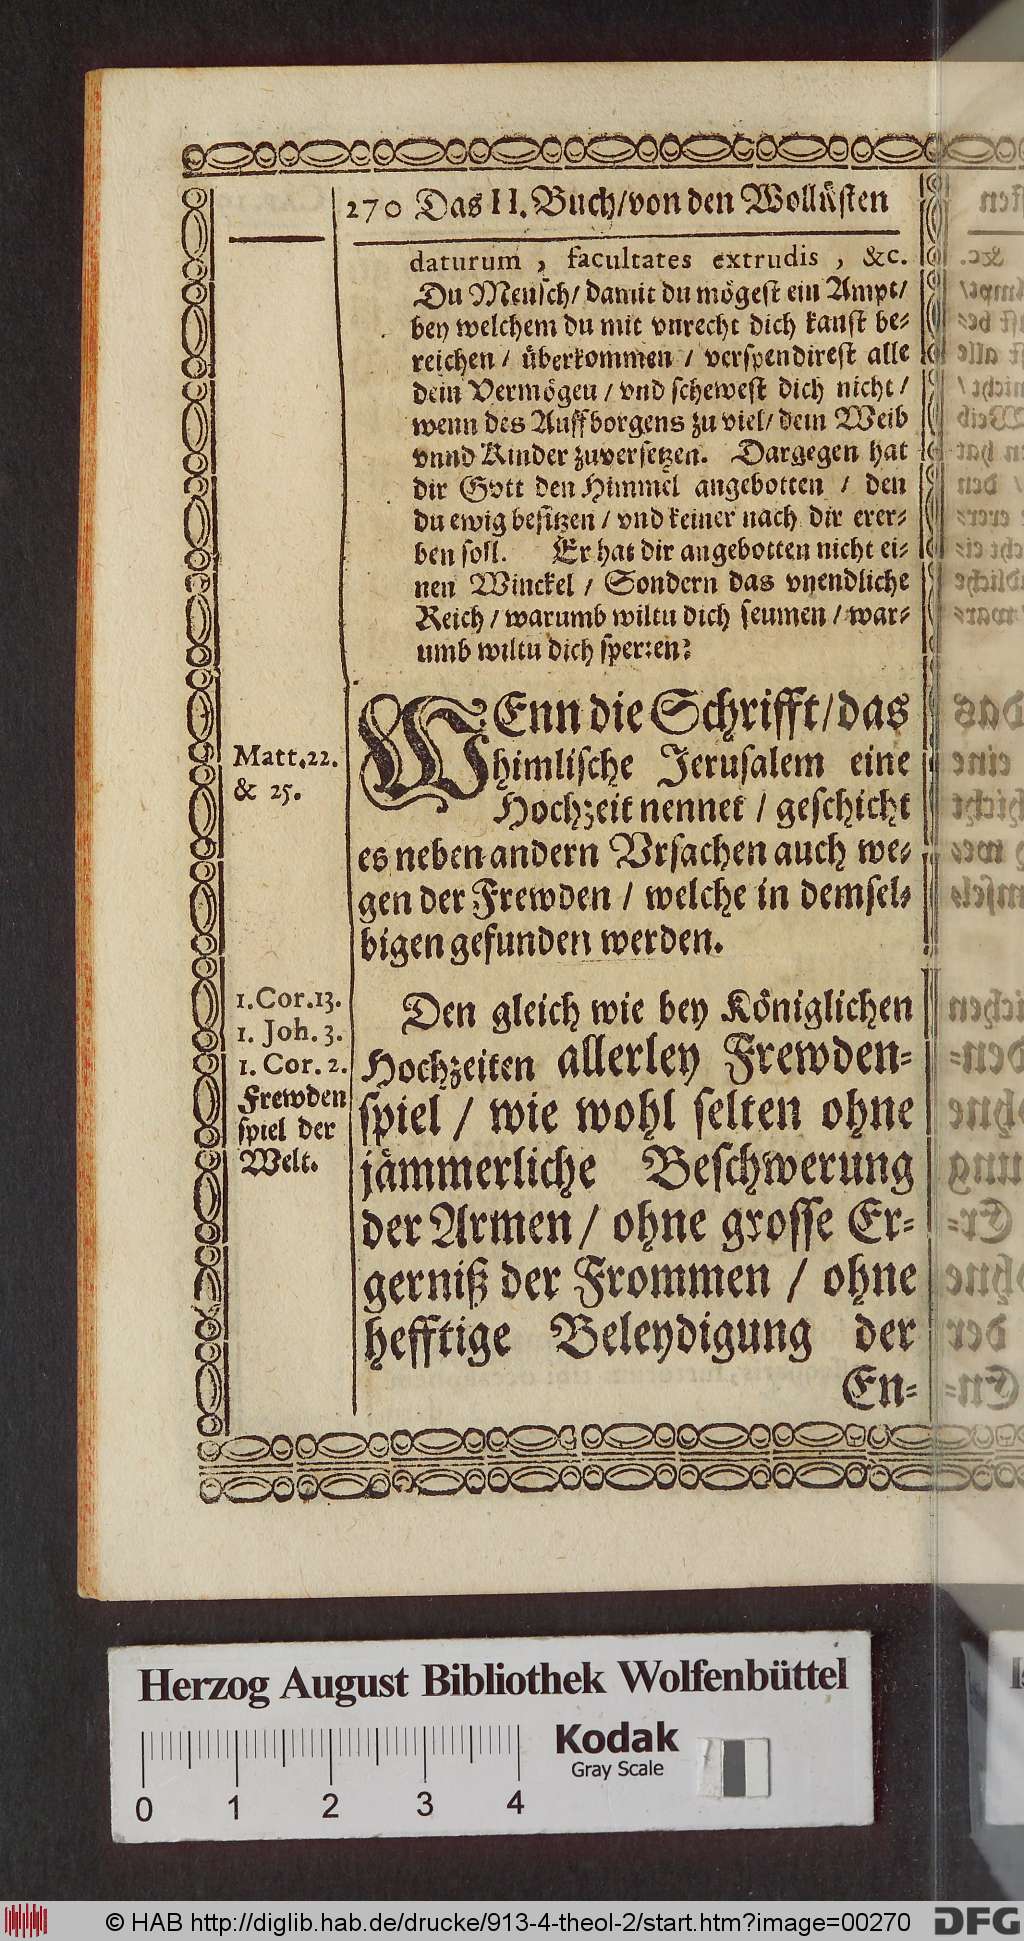 270 Das II. Buch/von den Wollüsten
daturum, facultates extrudis, &c.
Du Mensch/ damit du mögest ein Ampt/
bey welchem du mit vnrecht dich kanst be-
reichen/ überkommen/ verspendirest alle
dein Vermögen/ vnd schewest dich nicht/
wenn des Auffborgens zu viel/ dem Weib
vnnd Kinder zuversetzen. Dargegen hat
dir Gott den Himmel angebotten/ den
du ewig besitzen/ vnd keiner nach dir erer-
ben soll. Er hat dir angebotten nicht ei-
nen Winckel/ Sondern das vnendliche
Reich/ warumb wiltu dich seumen/ war-
umb wiltu dich sperren?
WEnn die Schrifft/das
himlische Jerusalem eine
Hochzeit nennet/ geschicht
es neben andern Vrsachen auch we-
gen der Frewden/ welche in demsel-
bigen gefunden werden.
Matt.22.
& 25.
Den gleich wie bey Königlichen
Hochzeiten allerley Frewden-
spiel/ wie wohl selten ohne
jämmerliche Beschwerung
der Armen/ ohne grosse Er-
gerniß der Frommen/ ohne
hefftige Beleydigung der
En-
1.Cor.13.
1. Joh. 3.
1. Cor. 2.
Frewden
spiel der
Welt.
Herzog August Bibliothek Wolfenbüttel
Kodak
Gray Scale
0 1 2 3 4
© HAB http://diglib.hab.de/drucke/913-4-theol-2/start.htm?image=00270
DFG